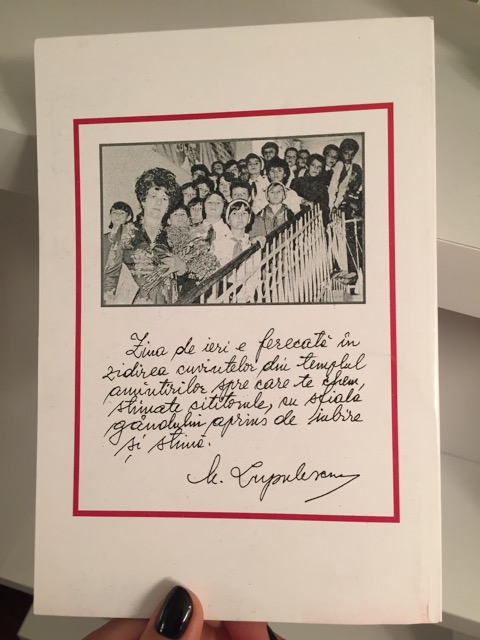 Ziua de ieri e ferecată în
zidirea cuvintelor din templul
amintirilor spre care te chem,
stimate cititorule, cu sfiala
gândului aprins de iubire
și stimă.
M. Lupulescu